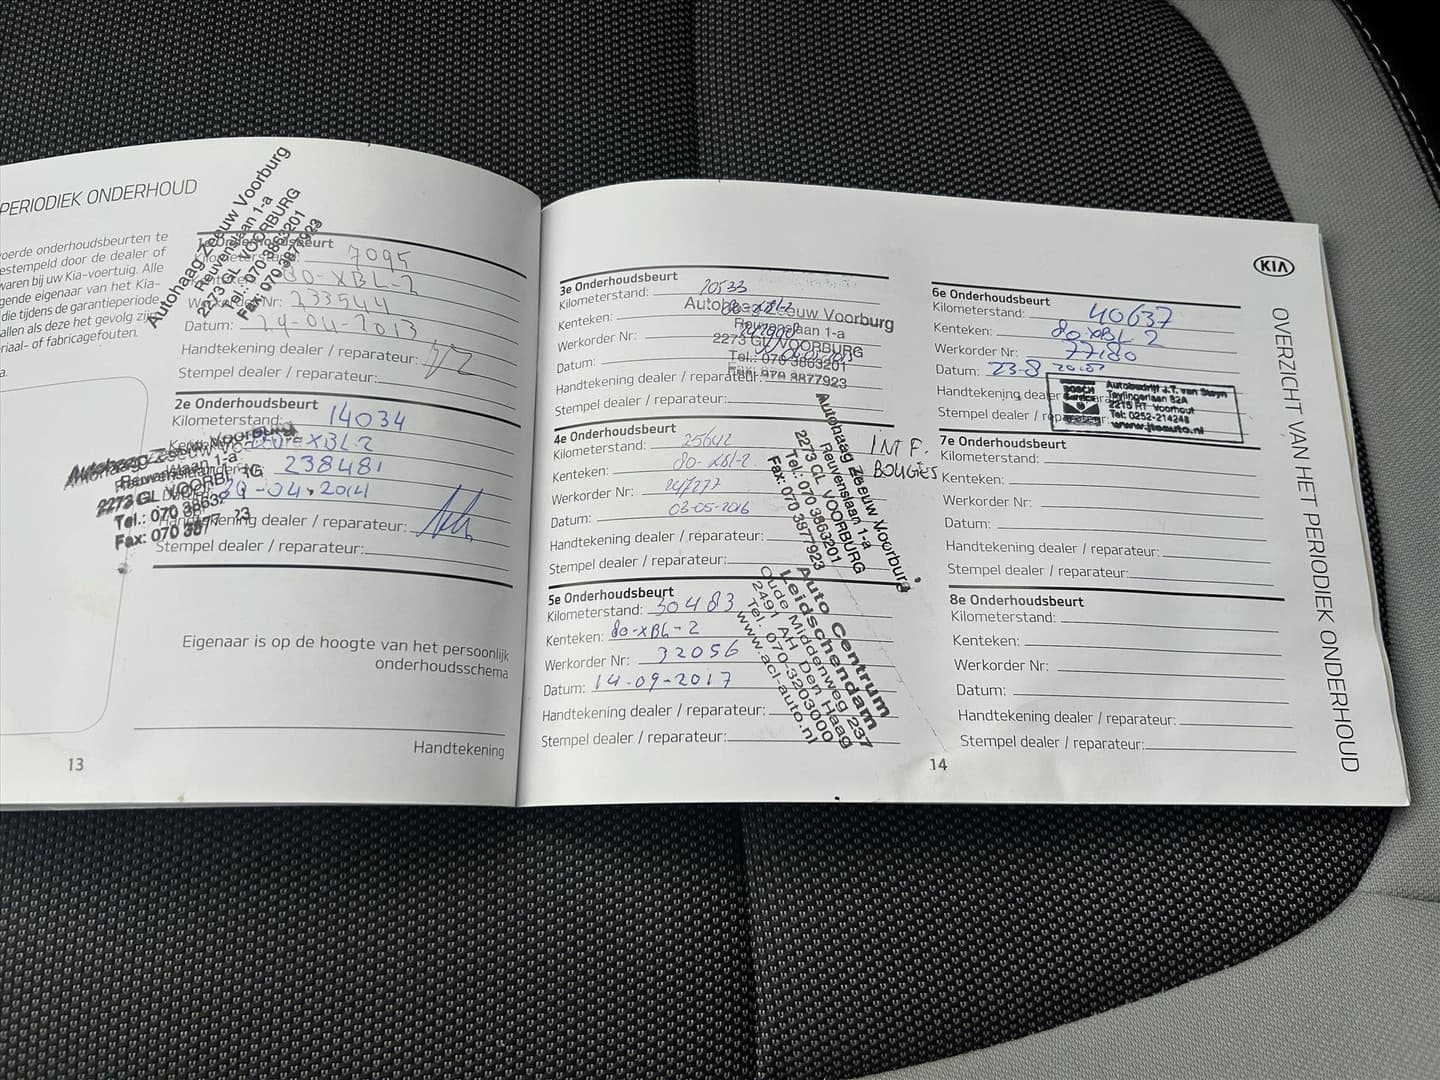 PERIODIEK ONDERHOUD
oerde onderhoudsbeurten te
estempeld door de dealer of
waren bij uw Kia-voertuig. Alle
gende eigenaar van het Kia-
die tijdens de garantieperiode
allen als deze het gevolg zijn
riaal- of fabricagefouten.
a.
1e Onderhoudsbeurt
Kilometerstand: 7095
Kenteken: 80-XBL-2
Werkorder Nr: 233544
Datum: 24-04-2013
Handtekening dealer / reparateur:
Stempel dealer / reparateur:
Autohaag Zeeuw Voorburg
Reuvenslaan 1-a
2273 GL VOORBURG
Tel.: 070 3863201
Fax: 070 3877923
2e Onderhoudsbeurt
Kilometerstand: 14034
Kenteken: 80-XBL2
238481
-04-2014
Handtekening dealer / reparateur:
Stempel dealer / reparateur:
Autohaag Zeeuw Voorburg
Reuvenslaan 1-a
2273 GL VOORBURG
Tel.: 070 38632
Fax: 070 3877 23
Eigenaar is op de hoogte van het persoonlijk
onderhoudsschema
Handtekening
13
3e Onderhoudsbeurt
Kilometerstand: 20533
Kenteken: 80-XBL-2
Werkorder Nr:
Datum:
Handtekening dealer / reparateur:
Stempel dealer / reparateur:
Autohaag Zeeuw Voorburg
Reuvenslaan 1-a
2273 GL VOORBURG
Tel.: 070 3863201
Fax: 070 3877923
4e Onderhoudsbeurt
Kilometerstand: 25642
Kenteken: 80-XBL-2
Werkorder Nr: 247277
Datum: 03-05-2016
Handtekening dealer / reparateur:
Stempel dealer / reparateur:
Autohaag Zeeuw Voorburg
Reuvenslaan 1-a
2273 GL VOORBURG
Tel.: 070 3863201
Fax: 070 3877923
INT F.
BOUGIES
5e Onderhoudsbeurt
Kilometerstand: 30483
Kenteken: 80-XBL-2
Werkorder Nr: 32056
Datum: 14-09-2017
Handtekening dealer / reparateur:
Stempel dealer / reparateur:
Auto Centrum
Leidschendam
Oude Middenweg 237
2491 AH Den Haag
Tel. 070-3203000
www.acl-auto.nl
14
KIA
6e Onderhoudsbeurt
Kilometerstand: 40637
Kenteken: 80 XBL 2
Werkorder Nr: 77180
Datum: 23-8
Handtekening dealer
Stempel dealer /
BOSCH
Service
Autobedrijf J.T. van Steyn
Teylingerlaan 82A
2215 RT Voorhout
Tel: 0252-214248
www.jtsauto.nl
7e Onderhoudsbeurt
Kilometerstand:
Kenteken:
Werkorder Nr:
Datum:
Handtekening dealer / reparateur:
Stempel dealer / reparateur:
8e Onderhoudsbeurt
Kilometerstand:
Kenteken:
Werkorder Nr:
Datum:
Handtekening dealer / reparateur:
Stempel dealer / reparateur:
OVERZICHT VAN HET PERIODIEK ONDERHOUD